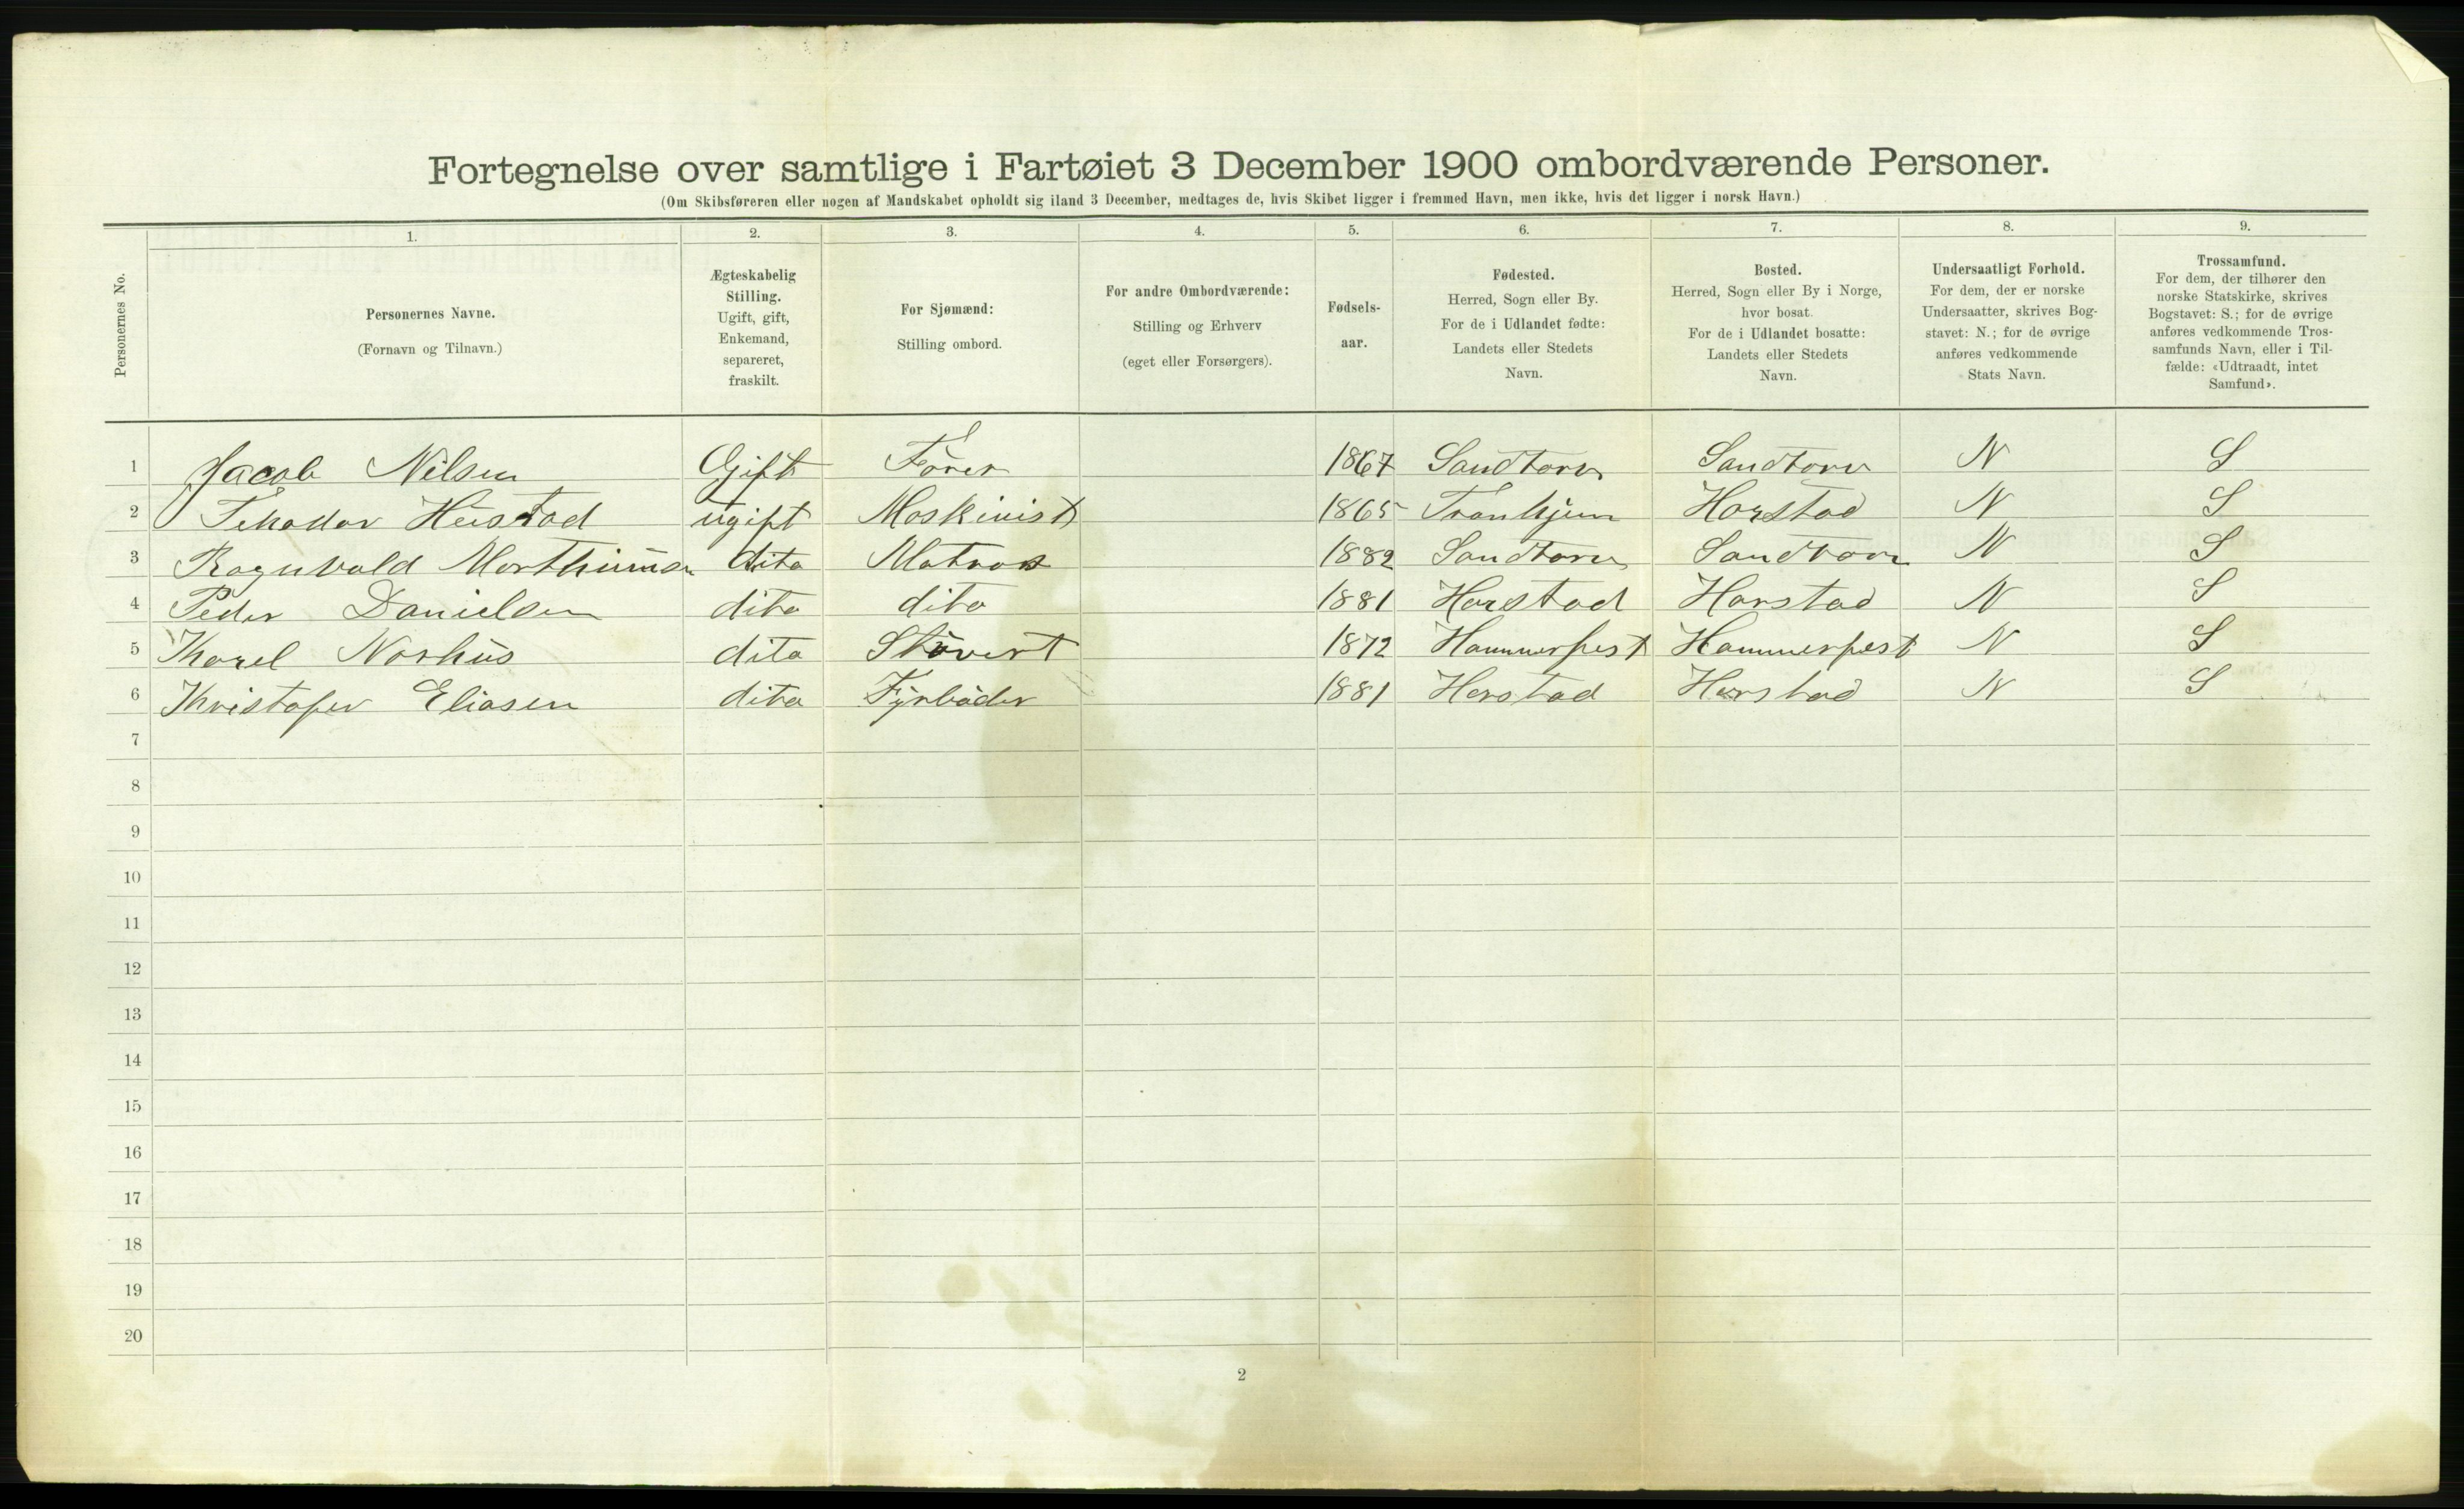 Fortegnelse over samtlige i Fartøiet 3 December 1900 ombordværende Personer.
(Om Skibsføreren eller nogen af Mandskabet opholdt sig iland 3 December, medtages de, hvis Skibet ligger i fremmed Havn, men ikke, hvis det ligger i norsk Havn.)
Personernes No.
1.
Personernes Navne.
(Fornavn og Tilnavn.)
2.
Ægteskabelig
Stilling.
Ugift, gift,
Enkemand,
separeret,
fraskilt.
3.
For Sjømænd:
Stilling ombord.
4.
For andre Ombordværende:
Stilling og Erhverv
(eget eller Forsørgers).
5.
Fødsels-
aar.
6.
Fødested.
Herred, Sogn eller By.
For de i Udlandet fødte:
Landets eller Stedets
Navn.
7.
Bosted.
Herred, Sogn eller By i Norge,
hvor bosat.
For de i Udlandet bosatte:
Landets eller Stedets
Navn.
8.
Undersaatligt Forhold.
For dem, der er norske
Undersaatter, skrives Bog-
stavet: N.; for de øvrige
anføres vedkommende
Stats Navn.
9.
Trossamfund.
For dem, der tilhører den
norske Statskirke, skrives
Bogstavet: S.; for de øvrige
anføres vedkommende Tros-
samfunds Navn, eller i Til-
fælde: «Udtraadt, intet
Samfund».
1 Jacob Nilsen Gift Fører 1867 Sandtorv Sandtorv N S
2 Hustad ugift Maskinist 1865 Tronhjem Harstad N S
3 Ragnvald dito Matros 1882 Sandtorv Sandtorv N S
4 Peder Danielsen dito dito 1881 Harstad Harstad N S
5 Karel Norhus dito Stövert 1872 Hammerfest Hammerfest N S
6 Kristofer Eliasen dito Fyrböder 1881 Harstad Harstad N S
7
8
9
10
11
12
13
14
15
16
17
18
19
20
2